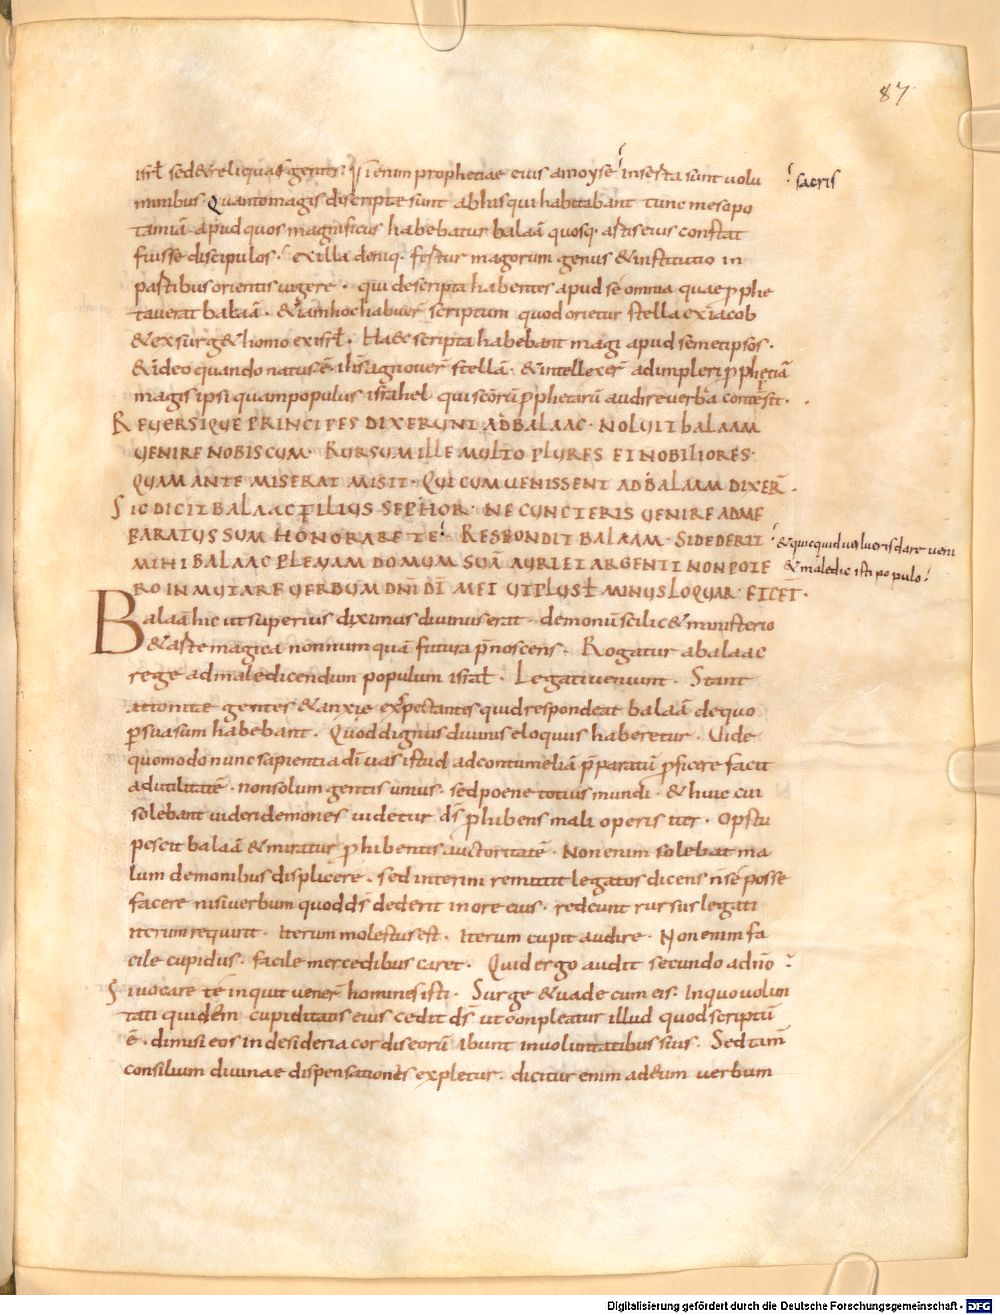 87
isrł sed &reliquas gentes. Si enim prophetiae eius a moyse insertae sunt volu
sacris
minibus. Quanto magis discriptae sunt ab his qui habitabant tunc mesopo
tamiā. apud quos magnificus habebatur balaā quosq. artis eius constat
fuisse discipulos. ex illa deniq. fertur magorum genus & institutio in
partibus orientis uigere. qui descripta habentes apud se omnia quae p̄phe
tauerat balaā. & iam hoc habuer̄ scriptum quod orietur stella ex iacob
& exsurg& homo ex isrł. Haec scripta habebant magi apud semetipsos.
& ideo quando natus ē ih̄s agnouer̄ stellā. & intellexer̄ adimpleri p̄ph&iā
magis ipsi quam populus israhel qui sc̄orū p̄phetarū audire uerba contēpsit.
REVERSIQVE PRINCIPES DIXERVNT AD BALAAC. NOLVIT BALAAM
VENIRE NOBISCVM. RVRSVM ILLE MVLTO PLVRES ET NOBILIORES
QVAM ANTE MISERAT MISIT. QVI CVM VENISSENT AD BALAAM DIXER̄.
SIC DICIT BALAAC FILIVS SEPHOR. NE CVNCTERIS VENIRE AD ME
PARATVS SVM HONORARE TE. RESPONDIT BALAAM. SI DEDERIT
& quicquid uolueris dare. ueni
MIHI BALAAC PLENAM DOMVM SVĀ AVRI ET ARGENTI NON POTE
& maledic isti populo.
RO INMVTARE VERBVM DN̄I DĪ MEI VT PLVS ł MINVS LOQVAR. ET CET.
Balaā hic ut superius diximus diuinus erat. demonū scilic& ministerio
& arte magica nonnumquā futura p̄noscens. Rogatur a balaac
rege ad maledicendum populum israł. Legati ueniunt. Stant
attonitae gentes & anxie expectantes quid respondeat balaā de quo
p̄suasum habebant. Quod dignus diuinis eloquiis haberetur. Vide
quomodo nunc sapientia dī uas istud ad contumeliā p̄paratū p̄ficere facit
ad utilitatē. non solum gentis unius. sed poene totius mundi. & huic cui
solebant uideri demones uidetur d̄s p̄hibens mali operis iter. Opstu
pescit balaā & miratur p̄hibentis auctoritatē. Non enim solebat ma
lum demonibus displicere. sed interim remittit legatos dicens n̄ se posse
facere nisi uerbum quod d̄s dederit in ore eius. redeunt rursus legati
iterum requirit. iterum molestus est. iterum cupit audire. Non enim fa
cile cupidus. facile mercedibus caret. Quid ergo audit secundo a dn̄o
Si uocare te inquit uener̄ homines isti. Surge & uade cum eis. In quo uolun
tati quidem cupiditatis eius cedit d̄s ut conpleatur illud quod scriptū
ē. dimisi eos in desideria cordis eorū ibunt in uoluntatibus suis. Sed tam̄
consilium diuinae dispensationes expletur. dicitur enim ad eum uerbum
Digitalisierung gefördert durch die Deutsche Forschungsgemeinschaft - DFG